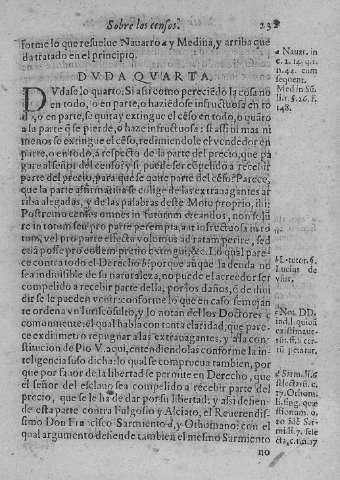 Sobre los censos. 23
forme lo que resuelue Nauarro a y Medina, y arriba que
da tratado en el principio.
DVDA QVARTA.
DVdase lo quarto. Si assi como pereciẽdo la cosa no
en todo, o en parte, o haziẽdose infructuosa en to
do, o en parte, se quita y extingue el cẽso en todo, o quãto
a la parte q̃ se pierde, o haze infructuosa: si assi ni mas ni
menos se extingue el cẽso, redimiendole el vendedor en
parte, o en todo, a respecto de la parte del precio, que pa
gare al señor del censo: y si puede ser compelido a recebir
parte del precio, para que se quite parte del cẽso. Parece,
que la parte affirmatiua se colige de las extrauagantes ar
riba alegadas, y de las palabras deste Moto proprio, ibi:
Postremo census omnes in futurum creandos, non solũ
re in totum seu pro parte perempta, aut infructuosa in to
tum, vel pro parte effecta volumus ad ratam perire, sed
etiã posse pro eodem pretio extingui, &c. Lo qual pare
ce contrato del Derecho b: porque aunque la deuda no
sea indiuisible de su naturaleza, no puede el acreedor ser
compelido a recebir parte della, por los daños, q̃ de diui
dir se le pueden venir: conforme lo que en caso semejan
te ordena vn Iurisconsulto, y lo notan c los Doctores
comunmente: el qual habla con tanta claridad, que pare
ce ex diametro repugnar a las extrauagantes, y a la con
stitucion de Pio V. aqui, entendiendolas conforme la in
teligencia suso dicha: lo qual se comprueua tambien, por
que por fauor de la libertad se permite en Derecho, que
el señor del esclauo sea compelido a recebir parte del
precio, que se le ha de dar por su libertad: y assi defien-
de esta parte contra Fulgosio y Alciato, el Reuerendis-
simo Don Francisco Sarmiento d, y Othomano: con el
qual argumento defiende tambien el mesmo Sarmiento
no
a Nauar. in
c. 1. 14. q. 1.
n. 42. cum
sequent.
Med in Sũ.
li. 1. §. 26. f.
148.
b l. tutor. §.
Lucius de
vsur.
c Not. DD.
in d. l. quiuii
ex
si cer-
tum petatur.
d Sarm. li. 6
select. c.
17. Othom.
li. sing. quæ
stionum. 
to idẽ Sar-
mi. li. 7. sele
cta, c. 1. n. 17